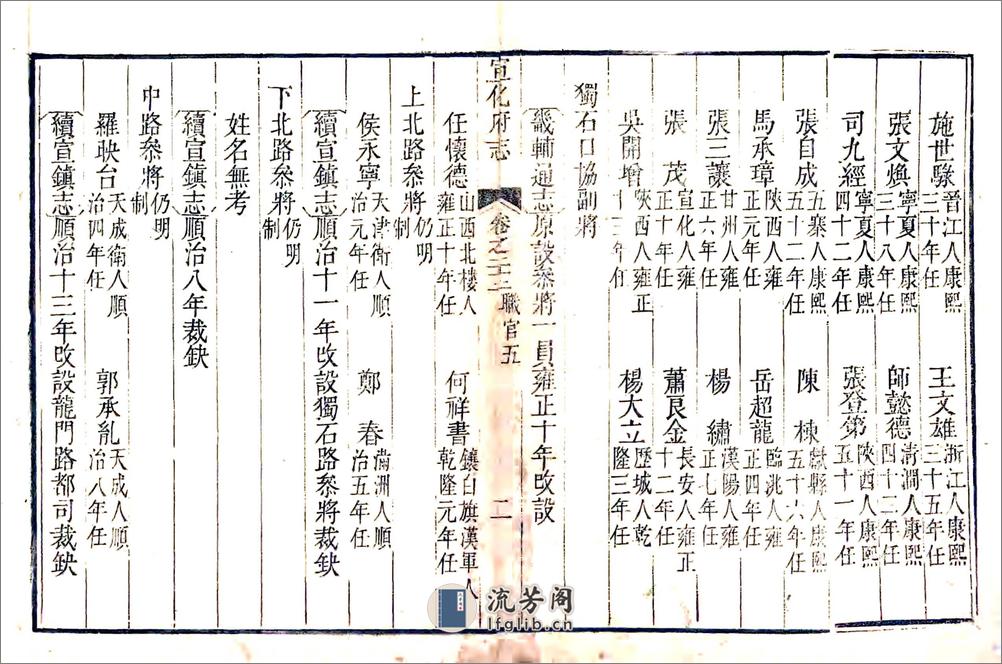 施世騄晉江人康熙三十年任　王文雄浙江人康熙三十五年任
張文煥寧夏人康熙三十八年任　師懿德清澗人康熙四十二年任
司九經寧夏人康熙四十二年任　張登第陝西人康熙五十一年任
張自成五寨人康熙五十二年任　陳棟獻縣人康熙五十六年任
馬承璋陝西人雍正元年任　岳超龍臨洮人雍正四年任
張三讓甘州人雍正六年任　楊繡漢陽人雍正七年任
張茂宣化人雍正十年任　蕭艮金長安人雍正十二年任
吳開增陝西人雍正十三年任　楊大立歷城人乾隆三年任
獨石口協副將
畿輔通志原設叅將一員雍正十年改設
宣化府志　卷之二十二　職官五　二
任懷德山西北樓人雍正十年任　何祥書鑲白旗漢軍人乾隆元年任
上北路叅將仍明制
侯永寧天津衛人順治元年任　鄭春滿洲人順治五年任
續宣鎮志順治十一年改設獨石路叅將裁缺
下北路叅將仍明制
姓名無考
續宣鎮志順治八年裁缺
中路叅將仍明制
羅映台天成衛人順治四年任　郭承亂天成人順治八年任
續宣鎮志順治十三年改設龍門路都司裁缺
流芳阁
lfglib.cn